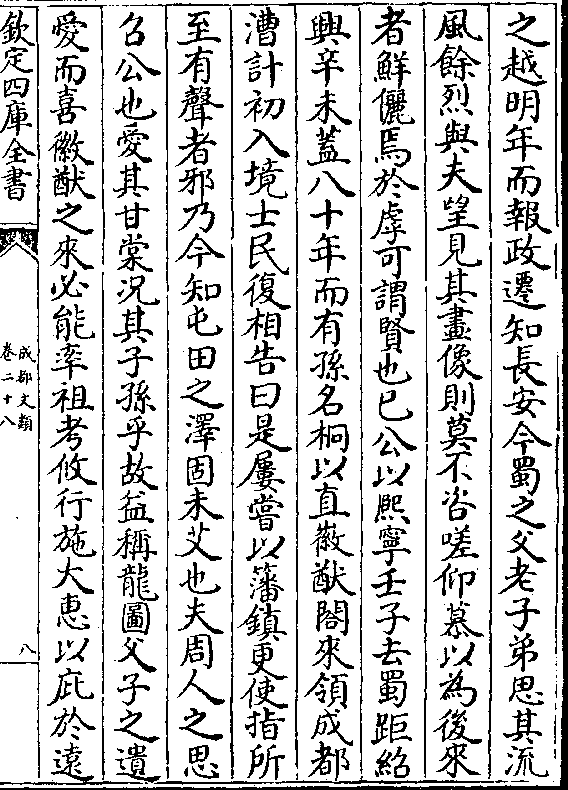 之越明年而報政遷知長安今蜀之父老子弟思其流
風餘烈與夫望見其畫像則莫不咨嗟仰慕以為後來
者鮮儷焉於虖可謂賢也已公以熈寧壬子去蜀距紹
興辛未蓋八十年而有孫名桐以直徽猷閣來領成都
漕計初入境士民復相告曰是屢嘗以藩鎮更使指所
至有聲者邪乃今知屯田之澤固未艾也夫周人之思
召公也愛其甘棠况其子孫乎故益稱龍圖父子之遺
愛而喜徽猷之來必能率祖考攸行施大惠以庇於遠
欽定四庫全書
成都文類
卷二十八
八